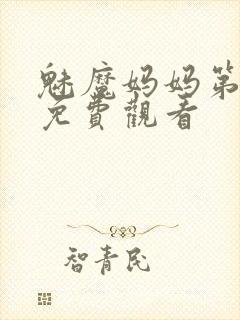 魅魔妈妈第
免費觀看
智青民